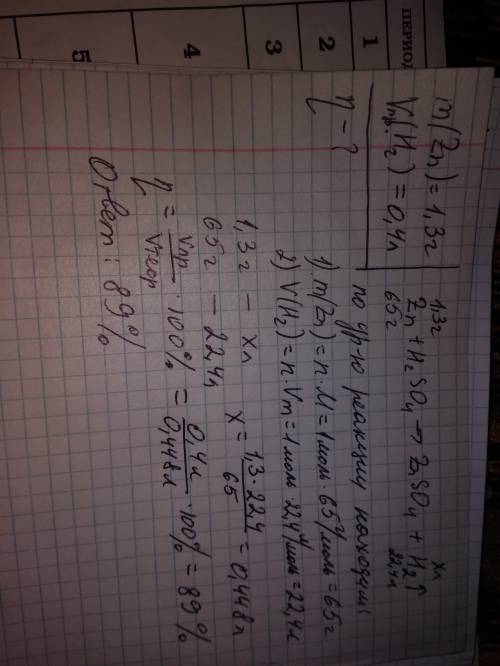 ПЕРИОД
1
2
3
4
5
m(Zn) = 1,3г
Vпр.(H₂) = 0,4л
η - ?
1,3г xл
Zn + H₂SO₄ → ZnSO₄ + H₂↑
65г 22,4л
по ур-ю реакции находим:
1) m(Zn) = n · M = 1моль · 65г/моль = 65г
2) V(H₂) = n · Vm = 1моль · 22,4л/моль = 22,4л
1,3г - xл
65г - 22,4л
x = 1,3 · 22,4 / 65 = 0,448л
η = Vпр / Vтеор · 100% = 0,4л / 0,448л · 100% = 89%
Ответ: 89%